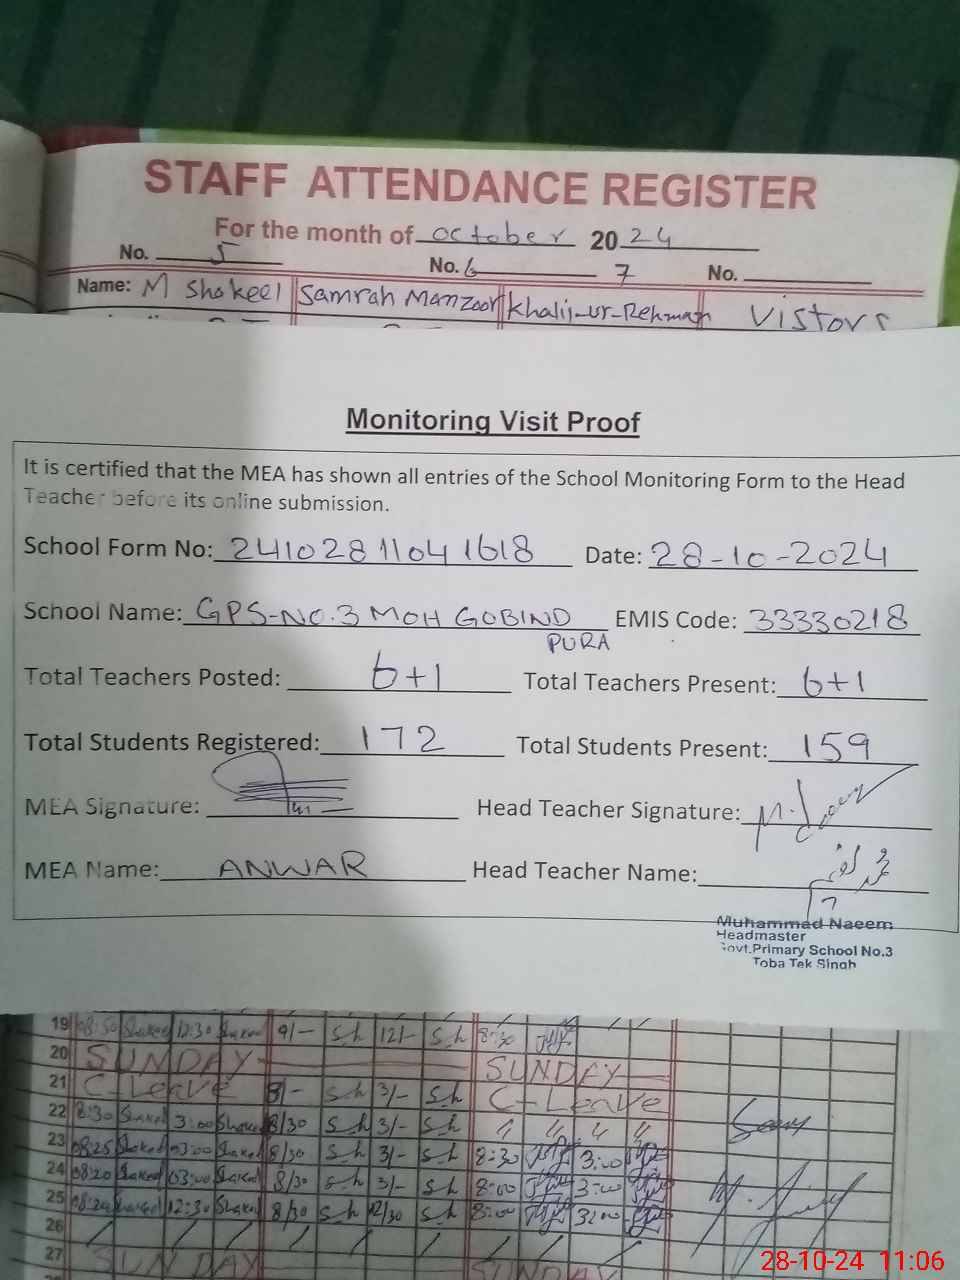 STAFF ATTENDANCE REGISTER
For the month of october 2024
No. 5 No. 6 7 No.
Name: M Shakeel Samrah Manzoor Khalij-ur-Rehman Vistors
Monitoring Visit Proof
It is certified that the MEA has shown all entries of the School Monitoring Form to the Head
Teacher before its online submission.
School Form No: 24102811041618 Date: 28-10-2024
School Name: GPS-NO.3 MOH GOBIND PURA EMIS Code: 33330218
Total Teachers Posted: 6+1 Total Teachers Present: 6+1
Total Students Registered: 172 Total Students Present: 159
MEA Signature: Head Teacher Signature:
MEA Name: ANWAR Head Teacher Name: محمد نعیم
Muhammad Naeem
Headmaster
Govt.Primary School No.3
Toba Tek Singh
19 08:50 Shakeel 12:30 Shakeel 9/- S-h 12/- S-h 8:30
20 SUNDAY SUNDAY
21 C-Leave 8/- S-h 3/- S-h C-Leave
22 8:30 Shakeel 3:00 Shakeel 8/30 S-h 3/- S-h
23 08:25 Shakeel 03:00 Shakeel 8/30 S-h 3/- S-h 8:30 3:00
24 08:20 Shakeel 03:00 Shakeel 8/30 S-h 3/- S-h 8:00 3:00
25 08:20 Shakeel 12:30 Shakeel 8/30 S-h 12/30 S-h 8:00
26
27 SUNDAY SUNDAY
28-10-24 11:06